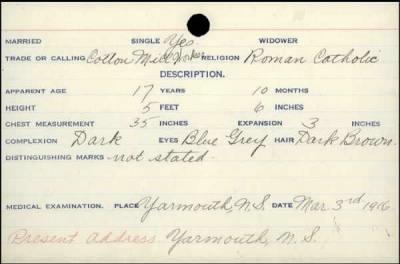 MARRIED SINGLE Yes WIDOWER
TRADE OR CALLING Cotton Mill Worker RELIGION Roman Catholic
DESCRIPTION.
APPARENT AGE 17 YEARS 10 MONTHS
HEIGHT 5 FEET 6 INCHES
CHEST MEASUREMENT 35 INCHES EXPANSION 3 INCHES
COMPLEXION Dark EYES Blue Grey HAIR Dark Brown.
DISTINGUISHING MARKS not stated.
MEDICAL EXAMINATION. PLACE Yarmouth, N.S. DATE Mar. 3rd 1916
Present Address Yarmouth, N.S.